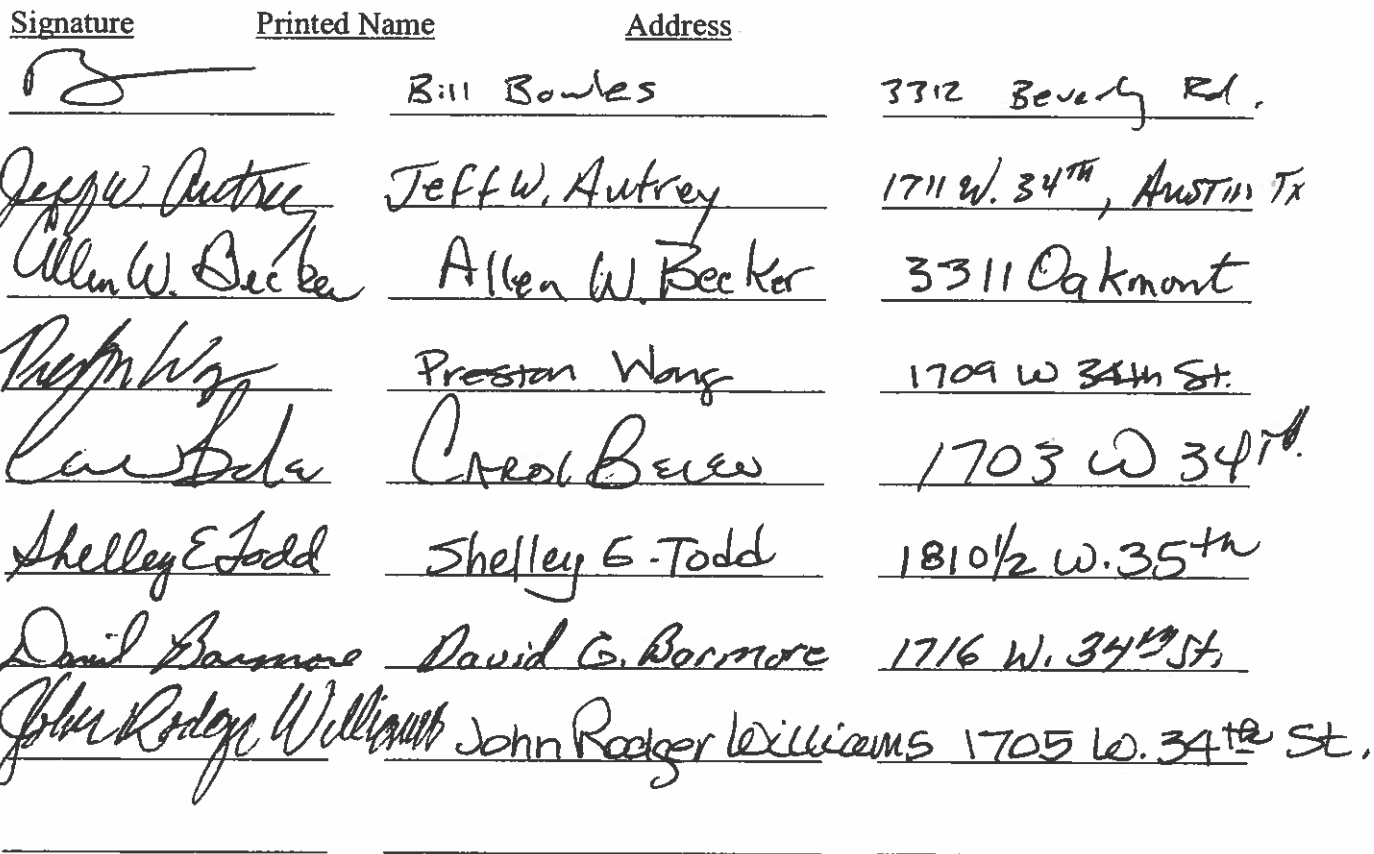 Signature Printed Name Address
Bill Bowles 3312 Beverly Rd.
Jeff W. Autrey Jeff W. Autrey 1711 W. 34TH, AUSTIN TX
Allen W. Becker Allen W. Becker 3311 Oakmont
Preston Wong Preston Wong 1709 W 34th St.
CAROL 1703 W 34TH.
Shelley E Todd Shelley E-Todd 1810 1/2 W. 35th
David Barmore David G. Barmore 1716 W. 34th St.
John Rodger Williams John Rodger Williams 1705 W. 34th St.